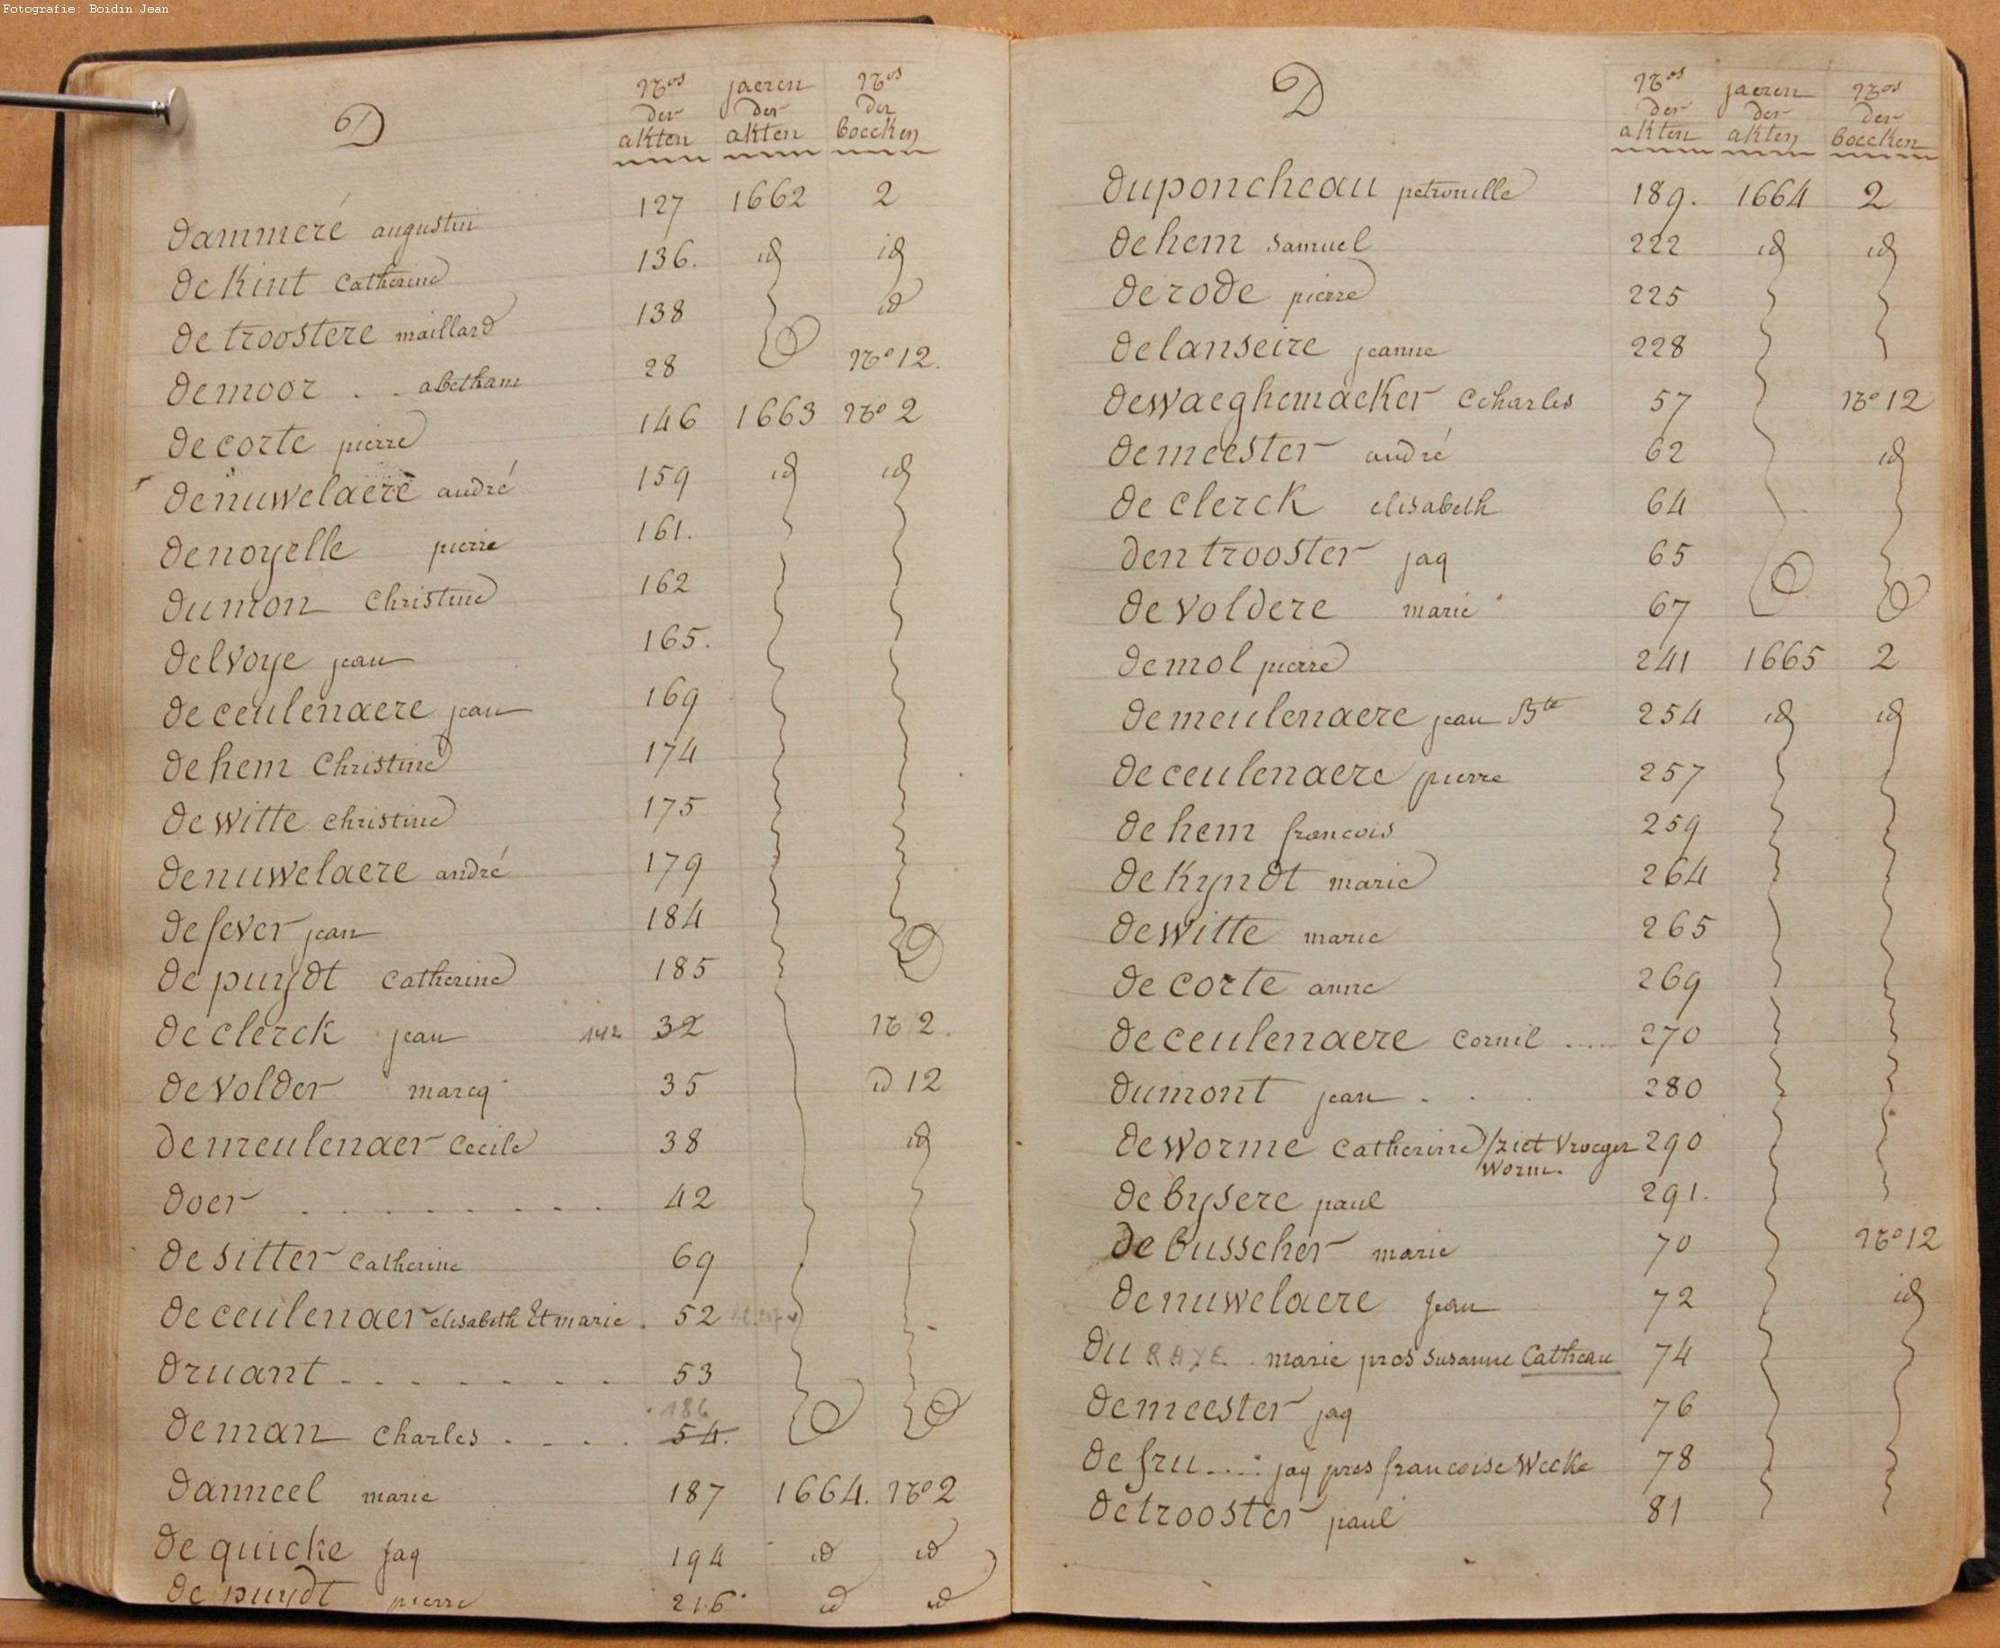 Fotografie: Boidin Jean
D
Nos der akten jaeren der akten Nos der boecken
dammeré augustin 127 1662 2
de Kint Catherine 136. id id
de troostere maillard 138 id
demoor . . abetham 28 No 12.
de corte pierre 146 1663 No 2
denuwelaere andré 159 id id
denoyelle pierre 161.
dumon Christine 162
delvoye jean 165.
de ceulenaere jean 169
de hem Christine 174
de witte christine 175
denuwelaere andré 179
de fever jean 184
de puydt Catherine 185
de clerck jean 142 32 No 2.
de volder marcq 35 id 12
demeulenaer Cecile 38 id
doer . . . . . . . . 42
de sitter Catherine 69
de ceulenaer elisabeth Et marie . 52
druant . . . . . . . 53
deman Charles . . . . 186 54.
danneel marie 187 1664. No 2
de quicke jaq 194 id id
de puydt pierre 216 id id
D
Nos der akten jaeren der akten Nos der boecken
duponcheau petronille 189. 1664 2
de hem Samuel 222 id id
de rode pierre 225
delanseire jeanne 228
dewaeghemaeker Ccharles 57 No 12
demeester andré 62 id
de clerck elisabeth 64
den trooster jaq 65
de voldere marie 67
demol pierre 241 1665 2
demeulenaere jean Bte 254 id id
de ceulenaere pierre 257
de hem francois 259
de Kyndt marie 264
de witte marie 265
de corte anne 269
de ceulenaere Cornil .... 270
dumont jean . . . 280
de worme Catherine /ziet vroeger 290
worm.
de bysere paul 291.
de busscher marie 70 No 12
denuwelaere jean 72 id
du RAYE . marie pros susanne Catheau 74
demeester jaq 76
de fru....: jaq pres francoise Wecke 78
detrooster paul 81